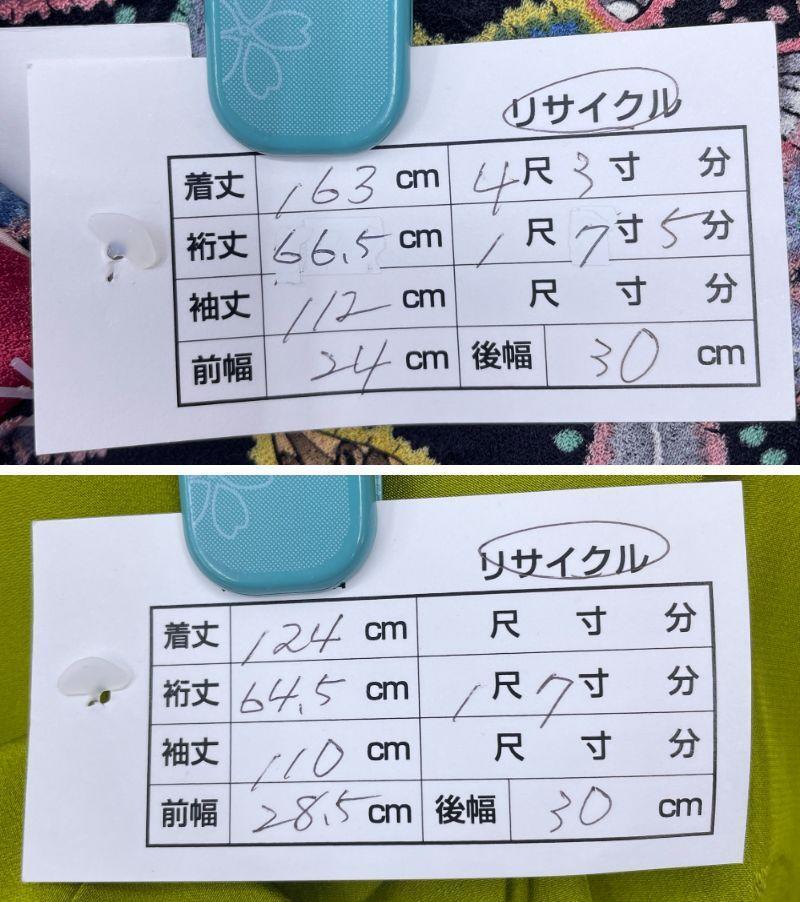 リサイクル
着丈 163 cm 4尺 3寸 分
裄丈 66.5 cm 1尺 7寸 5分
袖丈 112 cm 尺 寸 分
前幅 24 cm 後幅 30 cm
リサイクル
着丈 124 cm 尺 寸 分
裄丈 64.5 cm 1尺 7寸 分
袖丈 110 cm 尺 寸 分
前幅 28.5 cm 後幅 30 cm